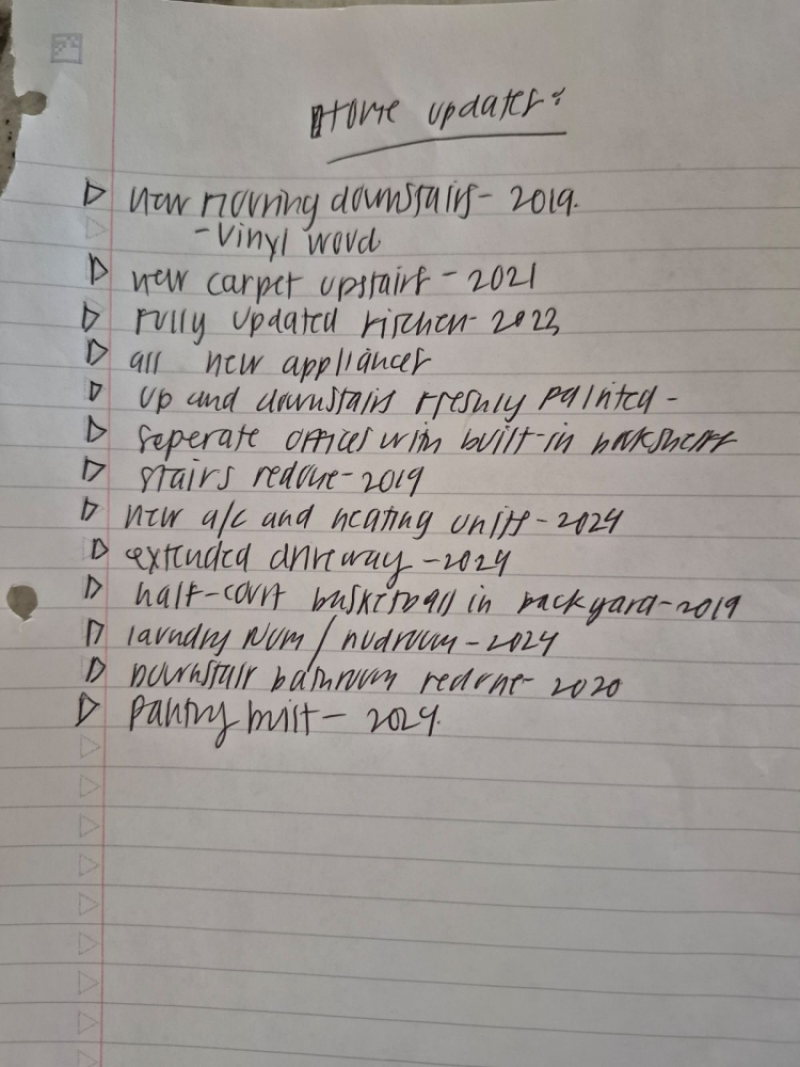 Home updates:
new flooring downstairs - 2019.
- vinyl wood
new carpet upstairs - 2021
fully updated kitchen - 2023
all new appliances
up and downstairs freshly painted -
seperate offices with built-in bookshelf
stairs redone - 2019
new a/c and heating units - 2024
extended driveway - 2024
half-court basketball in backyard - 2019
laundry room / mudroom - 2024
Downstair bathroom redone - 2020
pantry built - 2024.